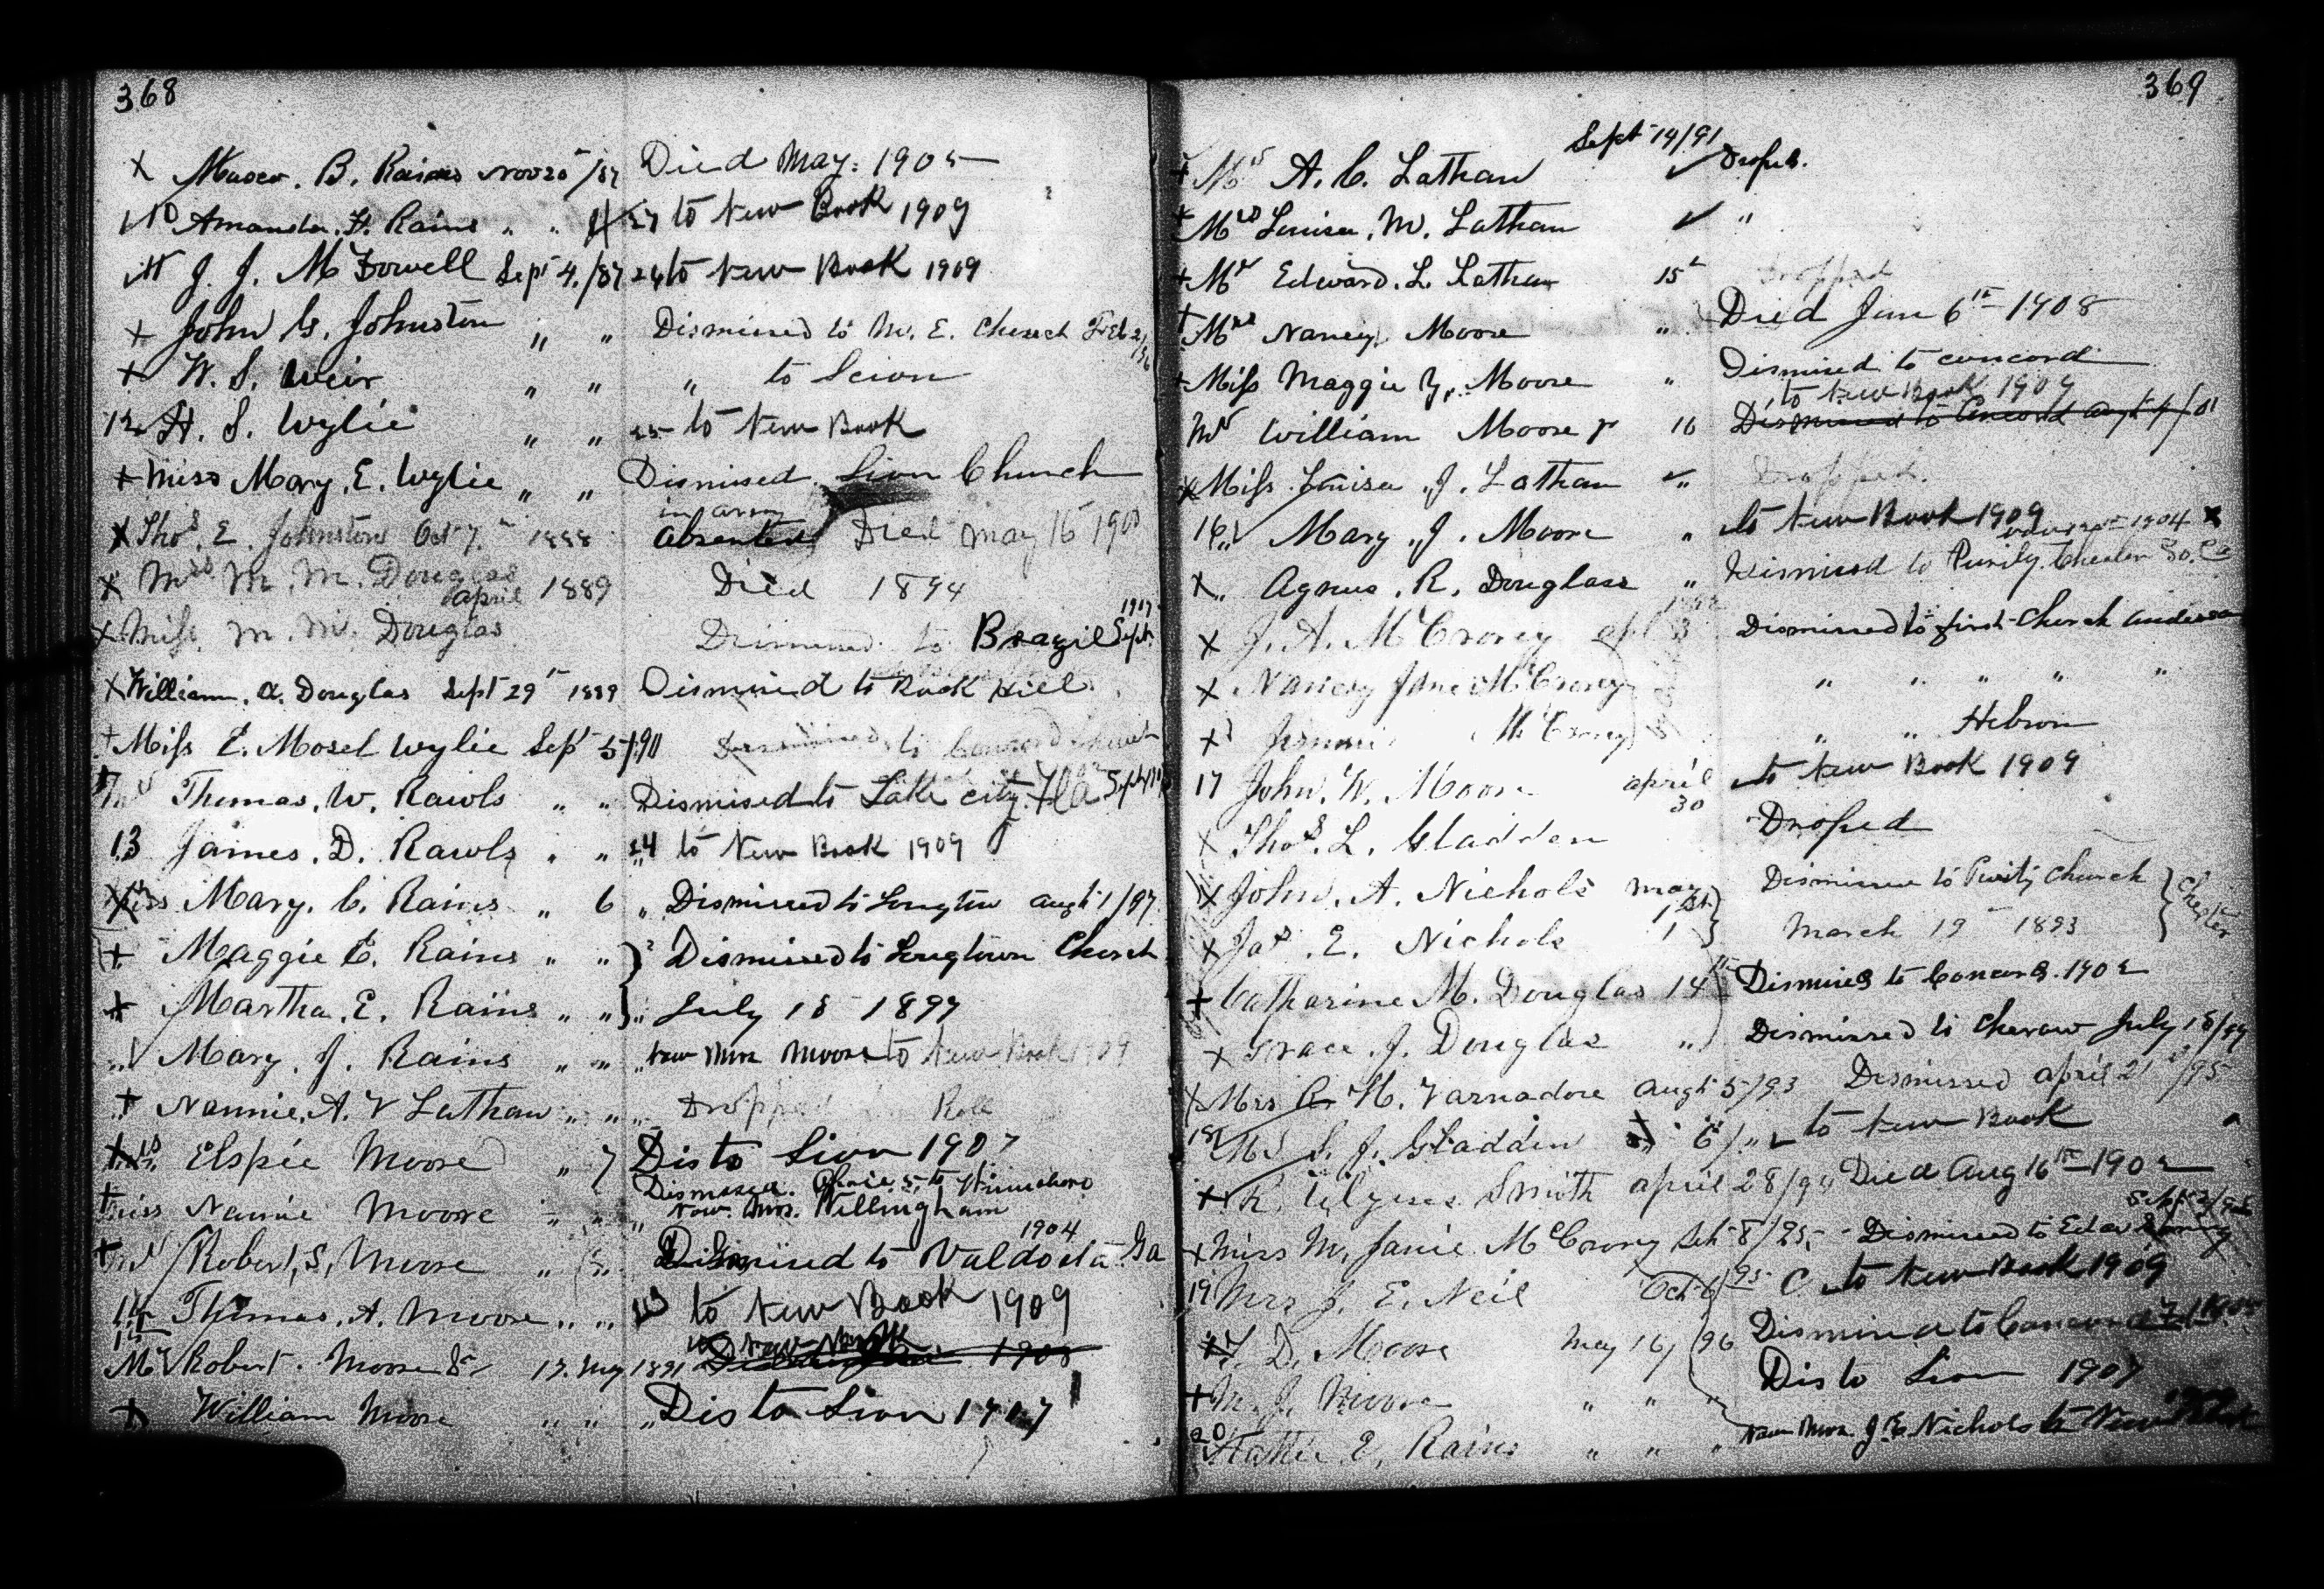 368
x B. Rains Nov 20/87 Died May. 1905
Amanda. H. Rains " " 27 to New Book 1909
J. J. McDowell Sept 4./87 26 to New Book 1909
x John G. Johnston " " Dismissed to M. E. Church Feb
x W. S. Weir " " " to Scion
12 H. S. Wylie " " 25 to New Book
x Miss Mary. E. Wylie " " Dismised. Sion Church
in army
x Thos. E. Johnston Oct 7. 1888 Absented Died May 16 1900
x Mrs M. M. Douglas April 1889 Died 1894
x Miss M. M. Douglas Dismissed to Brazil Sept.
x William. A. Douglas Sept 29th 1889 Dismissed to Rock Hill
+ Miss E. Mosel Wylie Sep 5/90 Dismissed to Concord Church
Mr Thomas. W. Rawls " " Dismised to Lake City. Fla
13 James. D. Rawls " " 24 to New Book 1909
x Miss Mary. C. Rains " 6 " Dismissed to Longtown Augt 1/97
+ Maggie E. Rains " " } Dismissed to Longtown Church
x Martha. E. Rains " " } " July 18 1897
Mary. J. Rains " " " Now Mrs Moore to New Book 1909
+ Nannie. A. V Lathan " " " Dropped Roll
x Mrs Elspie Moore " 7 Dis to Sion 1907
Dismissed. to Winnsboro
+ Miss Nannie Moore " " " Now. Mrs. Willingham
1904
+ Mr Robert, S, Moore " " Dismised to Valdosta Ga
14 Thomas. A. Moore " " to New Book 1909
15 to New Book
Mr Robert. Moore Sr 17. May 1891 1908
x William Moore " " " Dis to Sion 1907
369
Sept 14/91
+ Mr A. C. Lathan ✓ Droped.
+ Mrs Louisa. M. Lathan ✓ "
+ Mr Edward. L. Lathan 15th Dropped
+ Mrs Nancy Moore " Died June 6th 1908
+ Miss Maggie Y. Moore " Dismised to Concord
to New Book 1909
Mr William Moore Jr 16 Dismissed to Concord Augt /01
x Miss Louisa. J. Lathan " Dropped.
16 " Mary. J. Moore " to New Book 1909
1904 x
x " Agnes. R. Douglass " Dismissed to Purity. Chester So. Ca
x J. A. McCrorey Apl 3 Dismissed to first Church Anderson
x Nancy Jane McCrorey " " " " "
x Jimmie McCrorey " " Hebron
17 John. W. Moore April 30 to New Book 1909
x Thos. L. Gladden Droped
x John. A. Nichols May 1st } Dismissed to Purity Church } Chester
x Jas. E. Nichols 1 } March 19 1893 }
+ Catharine M. Douglas 14th Dismised to Concord. 1902
x Grace. J. Douglas " Dismissed to Cheraw July 18/97
x Mrs H. Varnadore Augt 5/93 Dismissed April 21st/95
18 Mrs S. J. Gladden 6/" to New Book
+ R. Ulysses Smith April 28/94 Died Aug 16th 1902
x Miss M. Janie McCrorey Sept 8/95. Dismissed to
19 Mrs J. E. Neil Oct 6 95 to New Book 1909
x T. D. Moore May 16/96 Dismised to Concord
+ M. J. Moore " " " Dis to Sion 1907
20 Hattie E. Rains " " " Now Mrs. J. E. Nichols to New Book